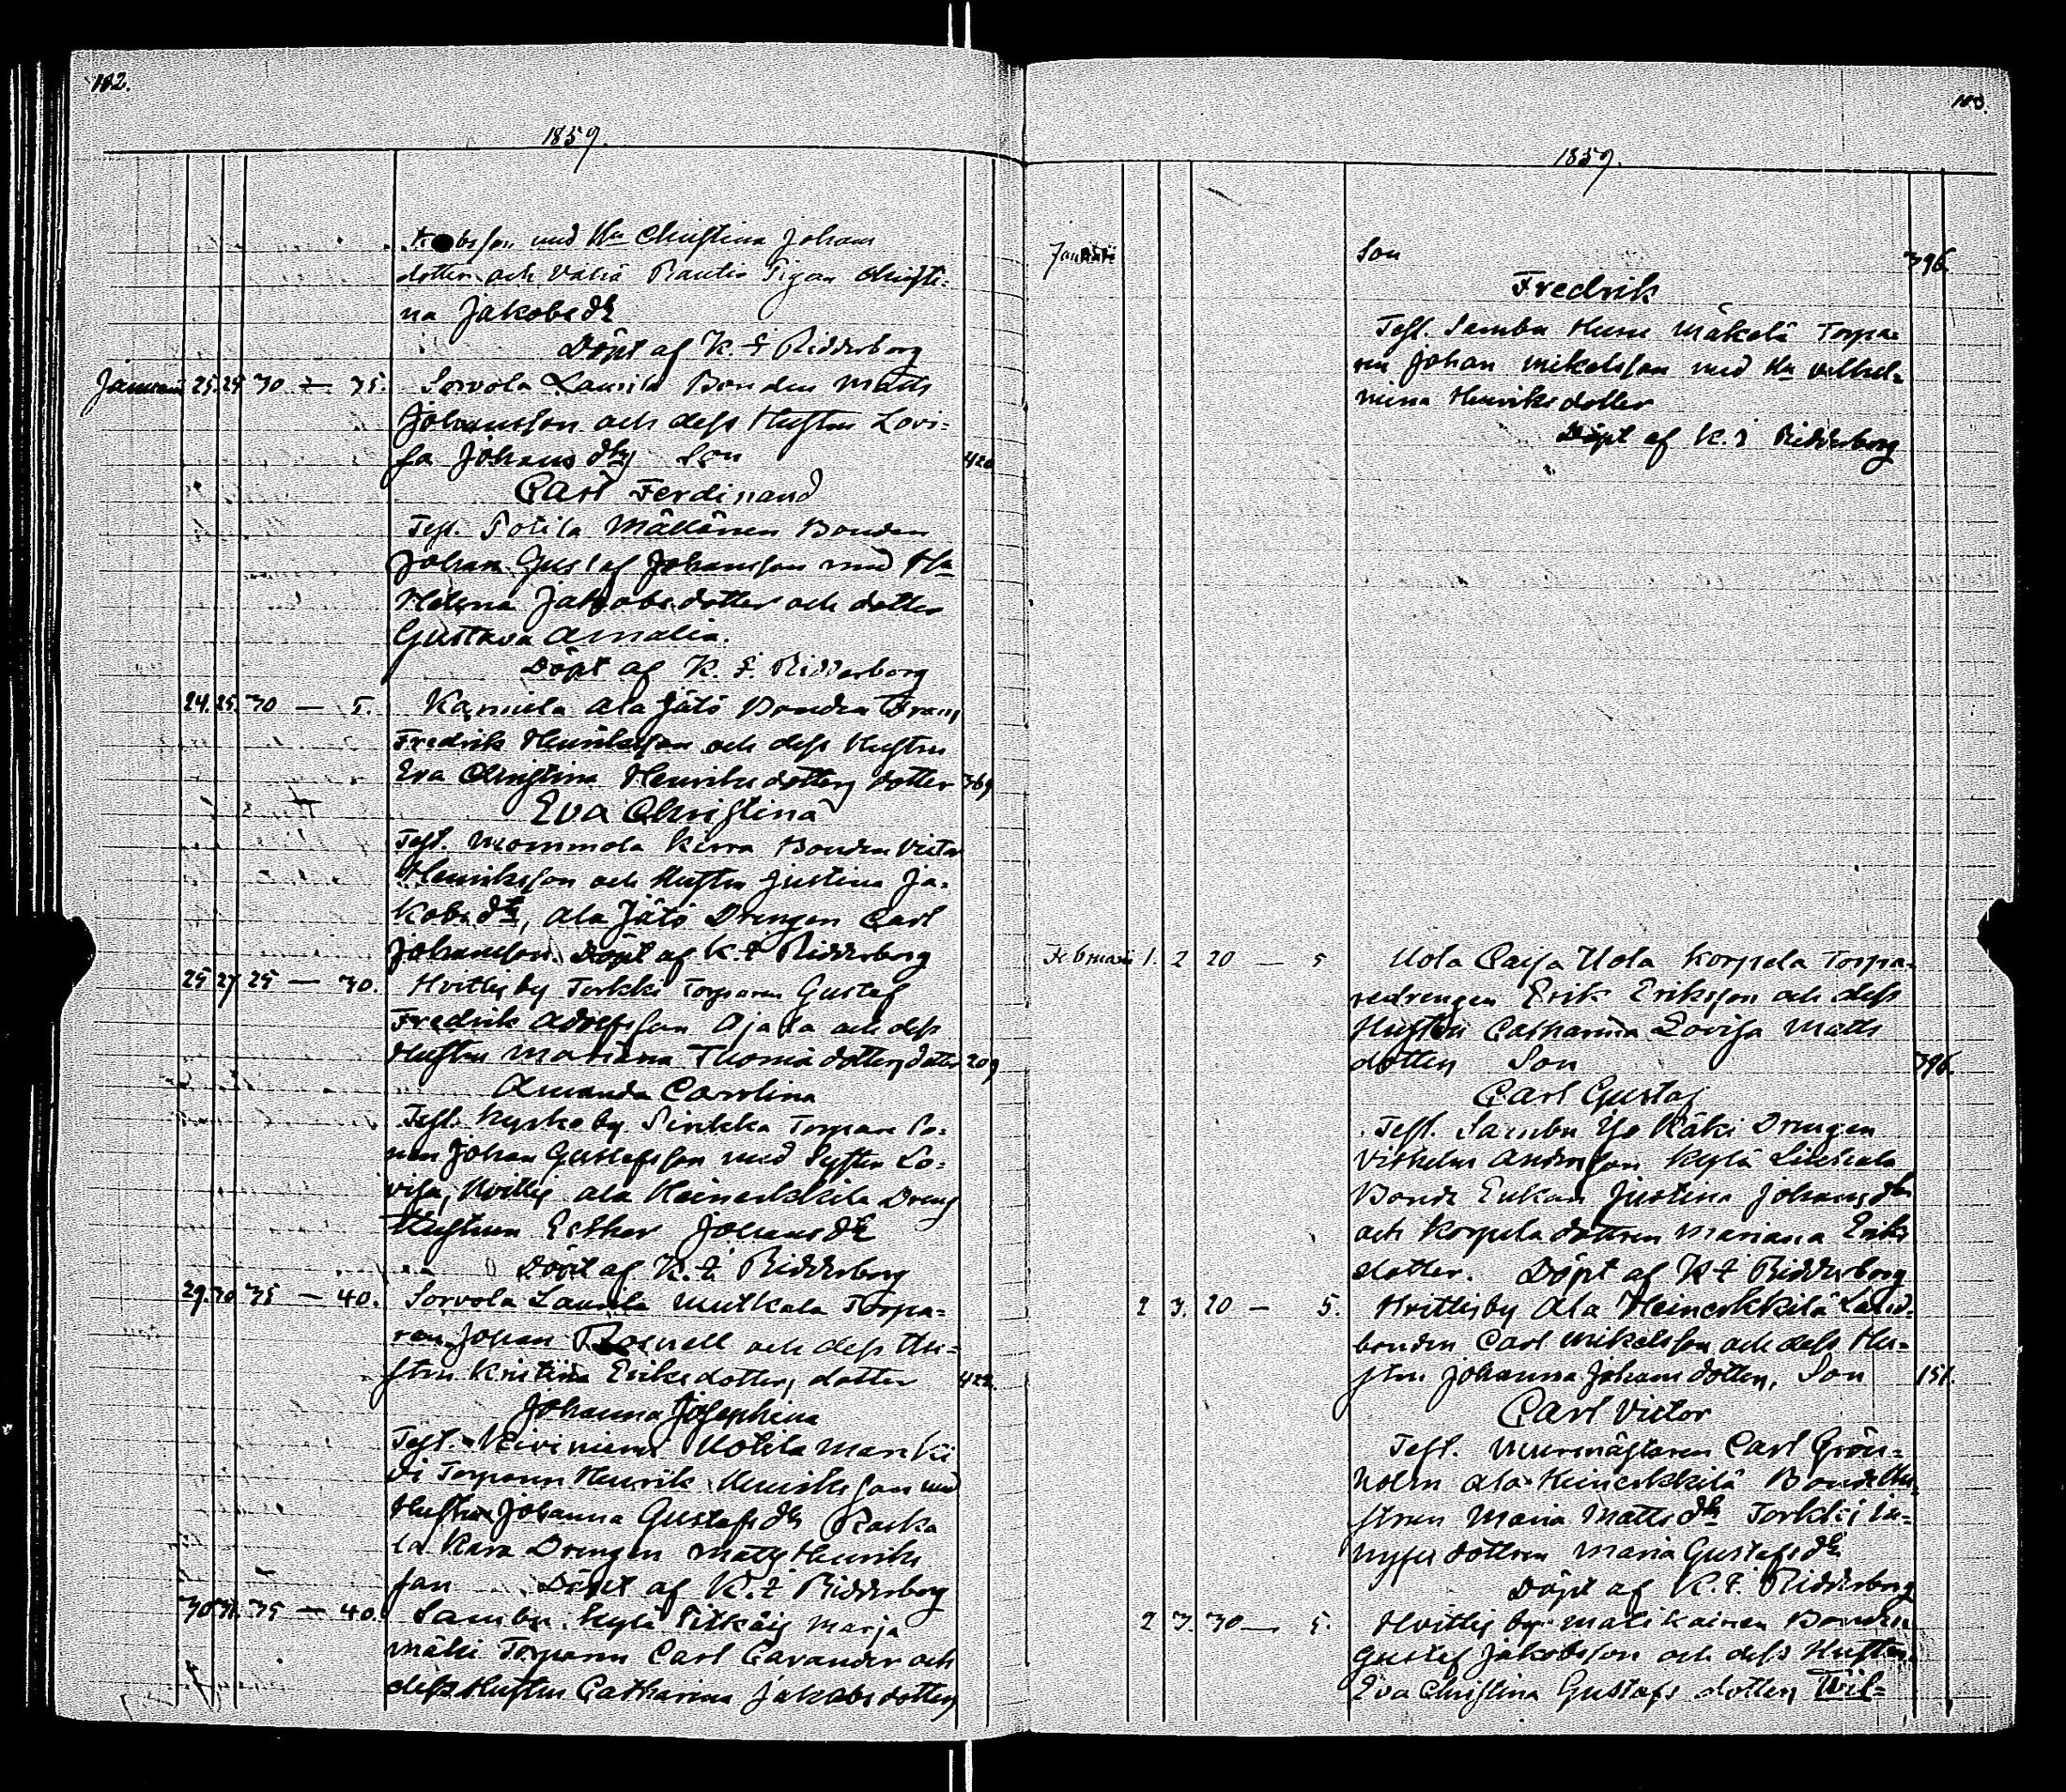 102.
1859.
med Hu Christina Johans
dotter och Pigan Christi-
na Jakobsdr
Döpt af K. F. Ridderborg
Januari 25. 25 30 — 35. Sorvola Laurila Bonden Matts
Johansson och dess Hustru Lovi-
sa Johansdr, Son 420
Carl Ferdinand
Test. Potila Mällänen Bonden
Johan Gustaf Johansson med Hu
Helena Jakobsdotter och dotter
Gustava Amalia.
Döpt af K. F. Ridderborg
24. 25. 30 — 5. Karniela Ala Jätö Bonden Frans
Fredrik Henriksson och dess Hustru
Eva Christina Henriksdotter, dotter 369
Eva Christina
Test. Mommola Kirra Bonden Victor
Henriksson och Hustru Justina Ja-
kobsdr, Ala Jätö Drengen Carl
Johansson. Döpt af K. F. Ridderborg
25 27 25 — 30. Hvittisby Torkki Torparen Gustaf
Fredrik Adolfsson Ojala och dess
Hustru Mariana Thomædotter, dotter 209
Amanda Carolina
Test. Kyrkoby Pirkka Torpare So-
nen Johan Gustafsson med Systen Lo-
visa, Hvittis Ala Heinerkkilä Dreng
Hustrun Esther Johansdr
Döpt af K. F. Ridderborg
29. 30 35 — 40. Sorvola Laurila Mutkala Torpa-
ren Johan Rosnell och dess Hu-
stru Kristina Eriksdotter, dotter 422.
Johanna Josephina
Test. Kiviniemi Uotila Man Ki
vi Torparen Henrik Henriksson med
Hustru Johanna Gustafsdr Raska
la Kara Drengen Matts Henriks
son Döpt af K. F. Ridderborg
30 31. 35 — 40. Sambu Kylä Pitkäis Marja
mäki Torparen Carl Cavander och
dess Hustru Catharina Jakobsdotter,
103.
1859.
Januari Son 396.
Fredrik
Test. Sambu Mäkelä Torpa-
ren Johan Mikelsson med Hu Vilhel-
mina Henriksdotter
Döpt af K. F. Ridderborg
Februari 1. 2 20 — 5 Uola Caisa Uola Korpela Torpa-
redrengen Erik Eriksson och dess
Hustru Catharina Lovisa Matts
dotter, Son 396.
Carl Gustaf
Test. Sambu Yli Käki Drengen
Vilhelm Andersson Kylä Liksala
Bonde Enkan Justina Johansdr
och Korpela dottren Mariana Eriks
dotter. Döpt af K. F. Ridderborg
2 3. 20 — 5. Hvittisby Ala Heinerkkilä Land-
bonden Carl Mikelsson och dess Hu-
stru Johanna Johansdotter, Son 151.
Carl Victor
Test. Murmästaren Carl Grön-
holm Ala Heinerkkilä Bonde Hu
strun Maria Mattsdr Torkki In-
hyses dottren Maria Gustafsdr
Döpt af K. F. Ridderborg
2 3. 30 — 5. Hvittis by Mali Kairen Bonden
Gustaf Jakobsson och dess Hustru
Eva Christina Gustafsdotter, Tvil-